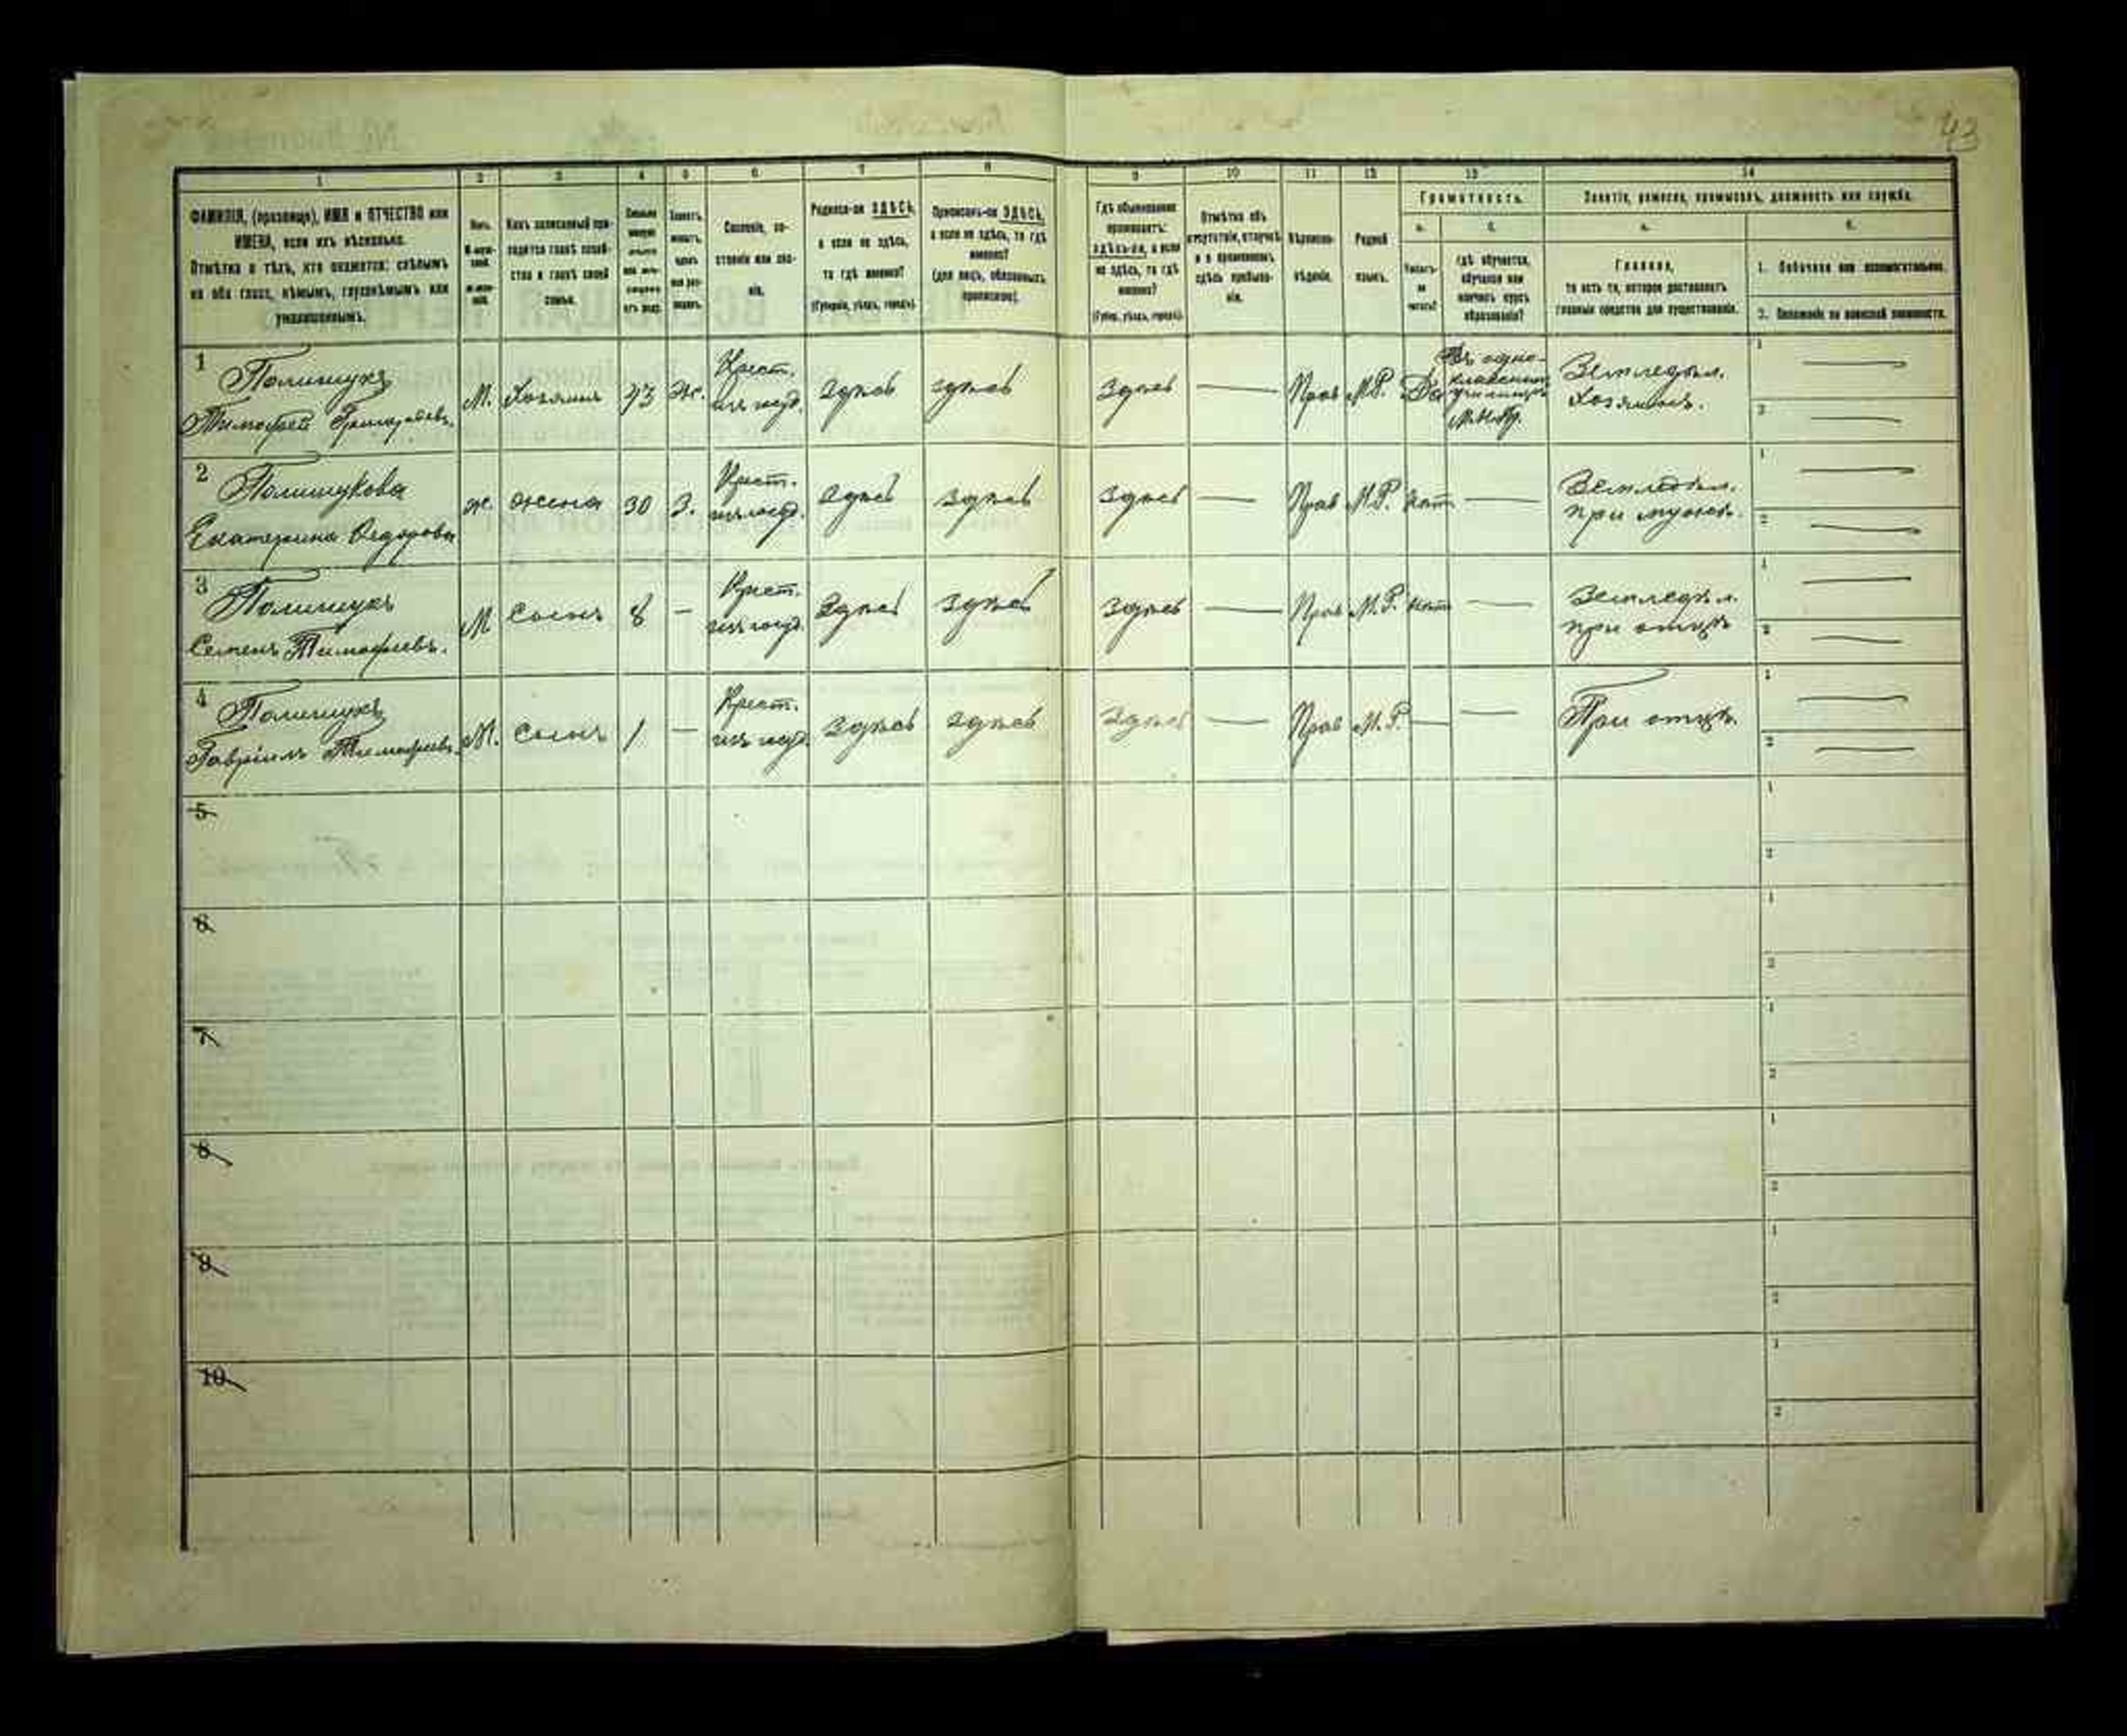 43
1
2
3
4
5
6
7
8
9
10
11
12
13
14
ФАМИЛІЯ, (прозвище), ИМЯ и ОТЧЕСТВО или
ИМЕНА, если ихъ нѣсколько.
Отмѣтка о тѣхъ, кто окажется: слѣпымъ
на оба глаза, нѣмымъ, глухонѣмымъ или
умалишеннымъ.
Полъ.
М-муж-
ской.
Ж-жен-
скій.
Какъ записанный при-
ходится главѣ хозяй-
ства и главѣ своей
семьи.
Сословіе, со-
стояніе или зва-
ніе.
Родился-ли ЗДѢСЬ,
а если не здѣсь,
то гдѣ именно?
(Губернія, уѣздъ, городъ).
Приписанъ-ли ЗДѢСЬ,
а если не здѣсь, то гдѣ
именно?
(для лицъ, обязанныхъ
припискою).
Гдѣ обыкновенно
проживаетъ:
здѣсь-ли, а если
не здѣсь, то гдѣ
именно?
(Губер., уѣздъ, городъ).
Отмѣтка объ
отсутствіи, отлучкѣ
и о временномъ
здѣсь пребыва-
ніи.
Вѣроиспо-
вѣданіе.
Родной
языкъ.
Грамотность.
а.
б.
гдѣ обучается,
обучался или
кончилъ курсъ
образованія?
Занятіе, ремесло, промыселъ, должность или служба.
а.
б.
Главное,
то есть то, которое доставляетъ
главныя средства для существованія.
1. Побочное или вспомогательное.
2. Положеніе по воинской повинности.
1
Полищукъ
Тимофей Григорьевъ.
М. Хозяинъ
Ж.
Крест.
изъ госуд.
здѣсь здѣсь здѣсь — Прав М.Р. Да
Въ одно-
классном
училищѣ
М.Н.Пр.
Земледѣл.
Хозяинъ.
1 —
2 —
2
Полищукова
Екатерина Федорова
ж. жена 30 З.
Крест.
изъ госуд.
здѣсь здѣсь здѣсь — Прав М.Р. нѣт —
Земледѣл.
при мужѣ.
1 —
2 —
3
Полищукъ
Семенъ Тимофеевъ.
М Сынъ 8 —
Крест.
изъ госуд.
здѣсь здѣсь здѣсь — Прав М.Р. нѣт —
Земледѣл.
при отцѣ
1 —
2 —
4
Полищукъ
Гавріилъ Тимофеевъ.
М. Сынъ 1 —
Крест.
изъ госуд.
здѣсь здѣсь здѣсь — Прав М.Р. — —
При отцѣ.
1 —
2 —
5
1
2
6
1
2
7
1
2
8
1
2
9
1
2
10
1
2